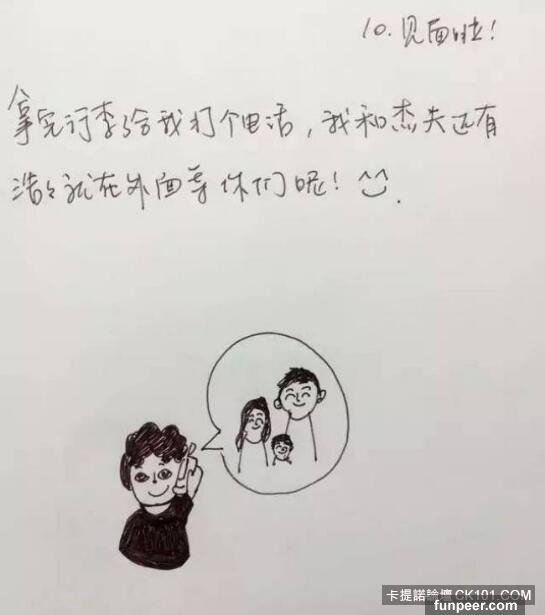 10.见面啦!
拿完行李给我打个电话,我和杰夫还有
浩浩就在外面等你们呢! ^_^.
卡提諾論壇 CK101.COM
funpeer.com